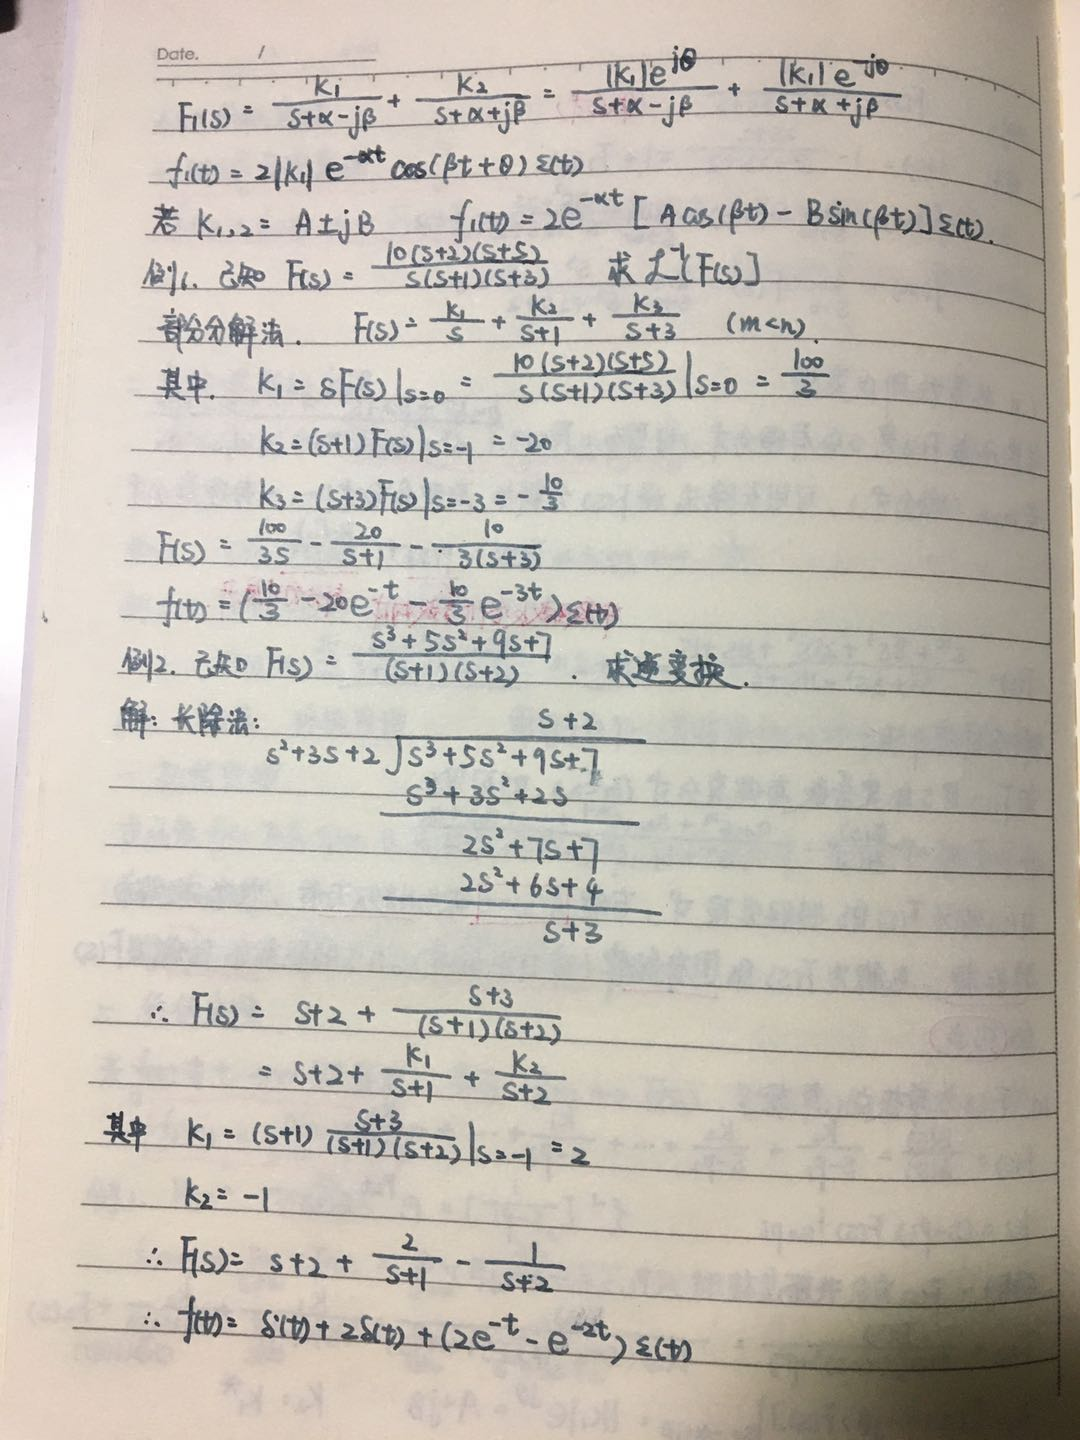 Date. /
F₁(s) = K₁/(s+α-jβ) + K₂/(s+α+jβ) = |K₁|e^{jθ}/(s+α-jβ) + |K₁|e^{-jθ}/(s+α+jβ)
f₁(t) = 2|K₁| e^{-αt} cos(βt+θ) ε(t)
若 K₁,₂ = A±jB f₁(t) = 2e^{-αt} [Acos(βt) - Bsin(βt)] ε(t).
例1. 已知 F(s) = 10(s+2)(s+5)/(s(s+1)(s+3)) 求 ℒ⁻¹[F(s)]
部分分解法. F(s) = k₁/s + k₂/(s+1) + k₃/(s+3) (m<n).
其中. K₁ = sF(s)|s=0 = 10(s+2)(s+5)/(s(s+1)(s+3))|s=0 = 100/3
K₂ = (s+1)F(s)|s=-1 = -20
K₃ = (s+3)F(s)|s=-3 = -10/3
F(s) = 100/3s - 20/(s+1) - 10/(3(s+3))
f(t) = (10/3 - 20e^{-t} - 10/3 e^{-3t}) ε(t)
例2. 已知 F(s) = (s³+5s²+9s+7)/((s+1)(s+2)). 求逆变换.
解: 长除法: s+2
s²+3s+2 √s³+5s²+9s+7
s³+3s²+2s
2s²+7s+7
2s²+6s+4
s+3
∴ F(s) = s+2 + (s+3)/((s+1)(s+2))
= s+2+ K₁/(s+1) + K₂/(s+2)
其中 K₁ = (s+1) (s+3)/((s+1)(s+2))|s=-1 = 2
K₂ = -1
∴ F(s) = s+2 + 2/(s+1) - 1/(s+2)
∴ f(t) = δ'(t) + 2δ(t) + (2e^{-t} - e^{-2t}) ε(t)